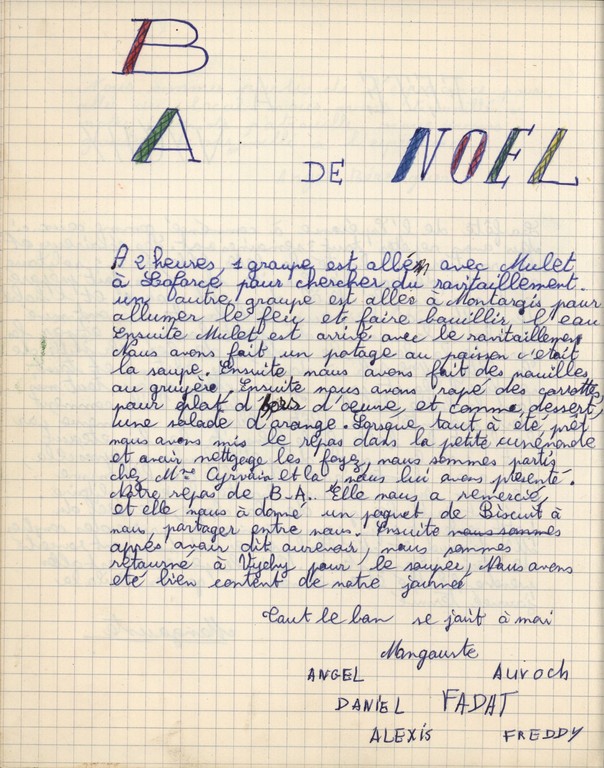 B
A
DE NOEL
A 2 heures, 1 groupe est allé avec Mulet
à Laforce pour chercher du ravitaillement.
un autre groupe est aller à Montargis pour
allumer le feu et faire bouillir l'eau
Ensuite Mulet est arrivé avec le ravitaillement
Nous avons fait un potage au poisson c'était
la soupe. Ensuite nous avons fait des nouilles
au gruyère. Ensuite nous avons rapé des carottes,
pour plat d' d'oeuvre, et comme dessert,
une salade d'orange. Lorsque tout à été prêt
nous avons mis le repas dans la petite
et avoir nettgegé les foyez, nous sommes partis
chez Mme et la nous lui avons présenté.
Notre repas de B-A. Elle nous a remercié,
et elle nous à donné un paquet de Biscuit à
nous partager entre nous. Ensuite nous sommes
apprés avoir dit aurevoir, nous sommes
retourné à Vychy pour le souper, Nous avons
été bien content de notre journée
Tout le ban se joint à moi
Mangouste
ANGEL Auroch
DANIEL FADAT
ALEXIS FREDDY